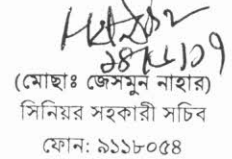 (মোছাঃ জেসমুন নাহার)
সিনিয়র সহকারী সচিব
ফোন: ৯১১৮০৫৪